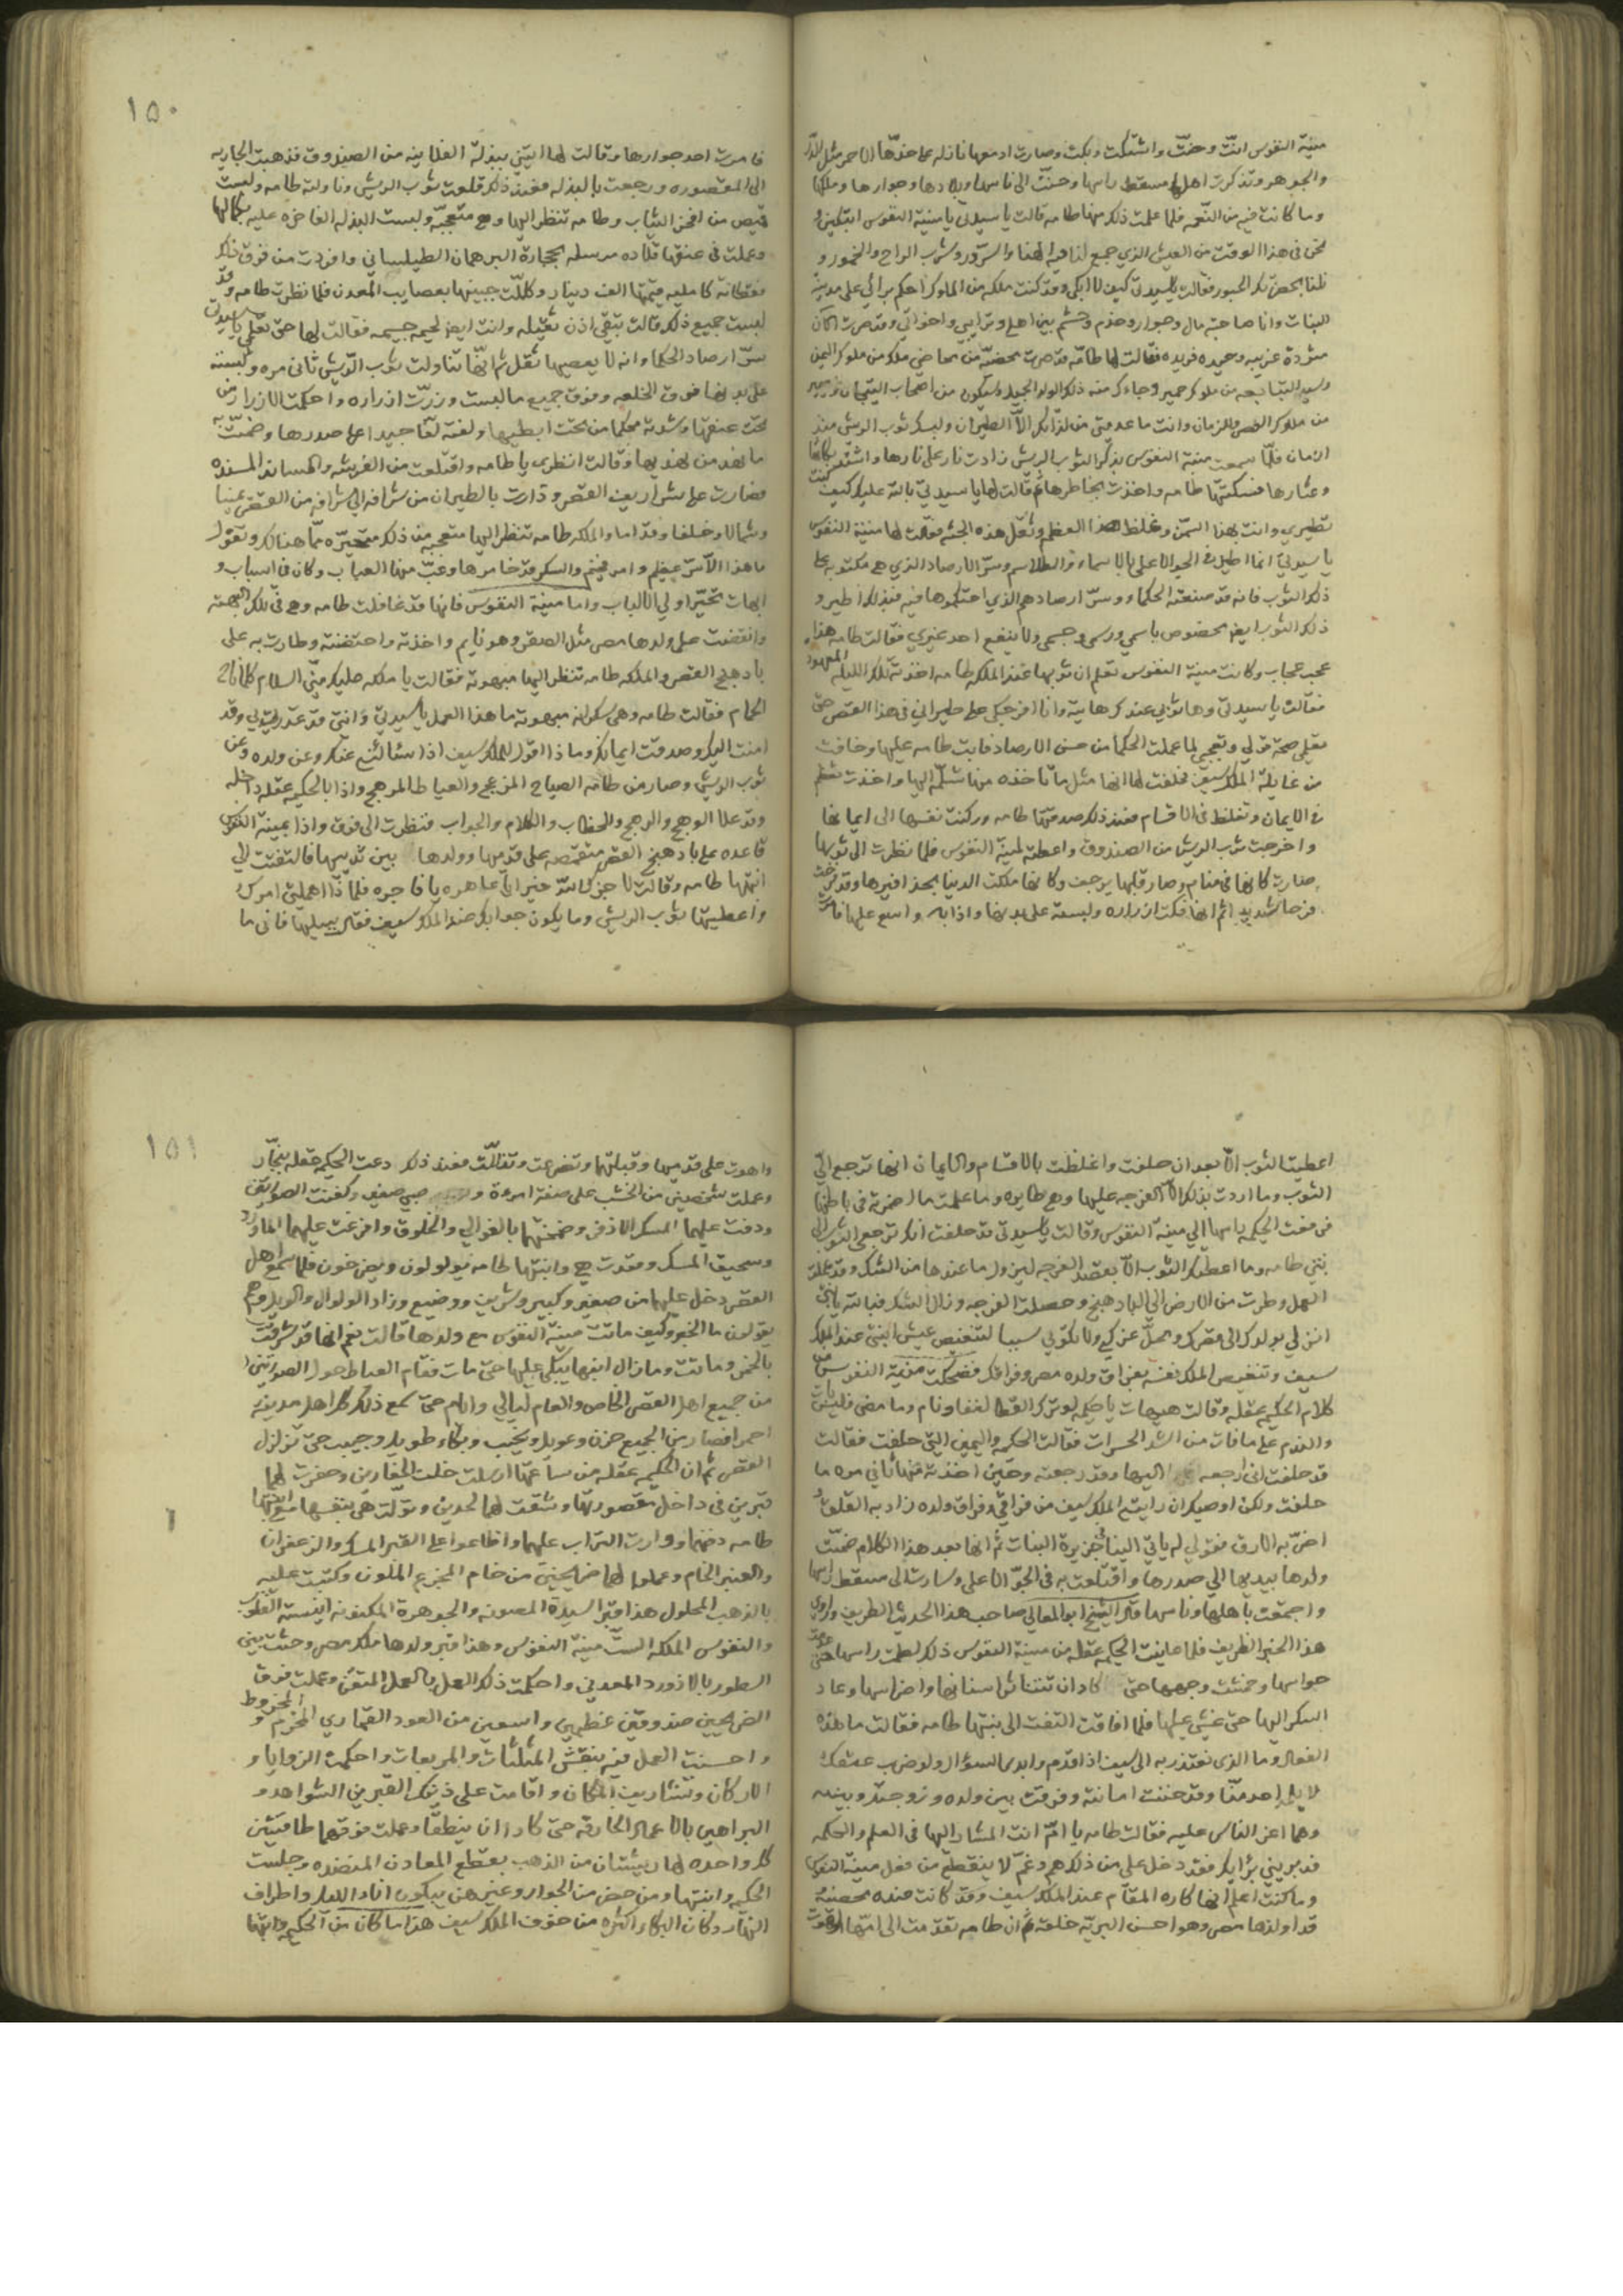 منية النفوس انّت وحنّت واشتكت وبكت وصارت ادمعها نازله على خدّها الاحمر مثل الدّر
والجوهر وتذكرت اهلها ومسقط راسها وحنّت الى ناسها وبلادها وجوارها وملكها
وما كانت فيه من النعمه فلما علمت ذلك منها طامه قالت يا سيدتي يا منية النفوس اتبكين و
نحن في هذا الوقت من العيش الذي جمع لنا فيه الهنا والسرور وشرب الراح والخمور و
فقالت يا سيدتي كيف لا ابكي وقد كنت ملكه من الملوك احكم برائي على مدينة
البنات وانا صاحبة مال وجوار وخدم وحشم بين اهلي وترايبي واخواتي وقد صرت الآن
مفردة غريبه وحيده فريده فقالت لها طامه قد صرتي محضيّة من محاضي ملك من ملوك اليمن
وسيد التبابعه من ملوك حمير وجاءك منه ذلك الولد الجيد وليكون من اصحاب التيجان
من ملوك العصر والزمان وانت ما عدمتي من لذاتك الّا الطيران ولبسك ثوب الريش منذ
ازمان فلمّا سمعت منية النفوس بذكر الثوب الريش زادت نار على نارها واشتد بكائها
فسكتتها طامه واخذت بخاطرها ثم قالت لها يا سيدتي بالله عليك كيف كنت
تطيري وانت بهذا السّمن وغلظ هذا العظم وثقل هذه الجثه فقالت لها منية النفوس
يا سيدتي انما اطير في الجو الاعلى بالاسماء والطلاسم وسرّ الارصاد الذي هي مكتوبه على
ذلك الثوب فانه قد صنعته الحكماء وسرّ ارصادهم الذي احكموها فيه فبذلك اطير و
ذلك الثوب ايضا مخصوص باسمي ورسمي وجسمي ولا ينفع احد غيري فقالت طامه هذا
عجب عجاب وكانت منية النفوس تعلم ان ثوبها عند الملكه طامه اخذته تلك الليله المعهوده
فقالت يا سيدتي وها ثوبي عندك هاتيه وانا افرجكي على طيراني في هذا القصر حتى
تعلمي صحة قولي وتعجبي لما عملت الحكما من حسن الارصاد فابت طامه عليها وخافت
من غايلة الملك سيف فحلفت لها انها مثل ما تاخذه منها تسلّمه اليها واخذت تعظم
في الايمان وتغلظ في الاقسام فعند ذلك صدقتها طامه وركنت نفسها الى ايمانها
واخرجت ثوب الريش من الصندوق واعطته لمنية النفوس فلما نظرت الى ثوبها
صارت كانها في منام وصار قلبها يرجف وكانها ملكت الدنيا بحذافيرها وقد فرحت
فرحا شديد ثم انها فكت ازراره ولبسته على بدنها واذا به واسع عليها
فامرت احد جوارها وقالت لها ايتني ببدلة الفلانيه من الصندوق فذهبت الجاريه
الى المقصوره ورجعت بالبدله فعند ذلك قلعت ثوب الريش وناولته طامه ولبست
قميص من افخر الثياب وطامه تنظر اليها وهي متعجبّه ولبست البدله الفاخره عليه بكمالها
وعملت في عنقها قلاده مرسله بحجارة البرهمان الطيلساني وافردت من فوق ذلك
قفطانه كامليه قيمتها الف دينار وكللّت جبينها بعصايب المعدن فلما نظرت طامه وقد
لبست جميع ذلك قالت تبقي اذن ثقيله وانت ايضا لحيمه جسيمه فقالت لها حتى تعلمي يا سيدتي
سرّ ارصاد الحكما وانه لا يعصيها ثقل ثم انّها تناولت ثوب الرّيش ثاني مره ولبسته
على بدنها فوق الخلعه وفوق جميع ما لبست وزررّت ازراره واحكمت الازرار من
تحت عنقها وشدته محكما من تحت ابطيها ولفته لفّا جيدا على صدرها وضمّت
ما نهد من نهديها وقالت انظري يا طامه واقتلعت من الفرشه والمساند المسنده
فصارت على شراريف القصر ودارت بالطيران من شرافه الى شرافه من القصر يمينا
وشمالا وخلفا وقداما والملكه طامه تنظر اليها متعجبه من ذلك متحيّره ممّا هنالك وتقول
ما هذا الّا سرّ عظيم وامر فخيم والسكر قد خامرها وغبّ منها العباب وكان في اسباب و
ابهات تحيّر اولي الالباب واما منية النفوس فانها قد غافلت طامه وهي في تلك البهته
وانقضت على ولدها مصر مثل الصقر وهو نايم واخذته واحتضنته وطارت به على
بادهنج القصر والملكه طامه تنظر اليها مبهوته فقالت يا ملكه عليك منّي السلام
الحمام فقالت طامه وهي سكرانه مبهوته ما هذا العمل يا سيدتي وانتي قد غدرتيني وقد
امنت اليك وصدقت ايمانك وماذا اقول للملك سيف اذا سئالني عنك وعن ولده وعن
ثوب الريش وصار من طامه الصياح المزعج والعياط المرهج واذا بالحكيمه عقله داخله
وقد علا الوهج والرهج والخطاب والكلام والجواب فنظرت الى فوق واذا بمنية النفوس
قاعده على بادهنج القصر منتصبه على قدميها وولدها بين ثدييها فالتفتت الى
ابنتها طامه وقالت لا جزاك اللّه خيرا يا عاهره يا فاجره فلماذا اهملتي امرك
واعطيتيها ثوب الريش وما يكون جوابك عند الملك سيف فقالت فاني ما
اعطيت الثوب الّا بعد ان حلفت واغلظت بالاقسام والايمان انها ترجع اليّ
الثوب وما اردت بذلك الّا الفرجه عليها وهي طايره وما علمت ما اضمرته في باطنها
فرفعت الحكيمه راسها الي منية النفوس وقالت يا سيدتي قد حلفت انك ترجعي الثوب الى
بنتي طامه وما اعطتك الثوب الّا بقصد الفرجه ليزول ما عندها من الشك وقد عملتي
العمل وطرت من الارض الي البادهنج وحصلت الفرجه وزال الشك فبالله يا بنتي
انزلي بولدك الى مقرّك ومحلّ عزّك ولا تكوني سببا لتنغيص عيش ابنتي عند الملك
سيف وتنغيص الملك نفسه بفراق ولده مصر وفراقك فضحكت منية النفوس من
كلام الحكيمه عقله وقالت هيهات يا حكيمه لو ترك القطا لغفا ونام وما مضى فليس يات
والندم على ما فات من اشد الحسرات فقالت الحكيمه واليمين التي حلفت فقالت
قد حلفت اني ارجعه اليها وقد رجعته وحين اخذته منها ثاني مره ما
حلفت ولكن اوصيك ان رايتي الملك سيف من فراقي وفراق ولده زاد به القلق و
اضرّ به الارق فقولي له ياتي الينا في جزيرة البنات ثم انها بعد هذا الكلام ضمّت
ولدها بيديها الي صدرها واقتلعت به في الجوّ الاعلى وسارت الى مسقط راسها
واجتمعت باهلها وناسها قال الشيخ ابو المعالي صاحب هذا الحديث الطريف وراوي
هذا الخبر الظريف فلما عاينت الحكيمه عقله من منية النفوس ذلك لطمت راسها حتى
حواسها وخمشت وجهها حتى كاد ان تتناثر اسنانها واضراسها وعاد
السكر اليها حتى غشي عليها فلما افاقت التفتت الى بنتها طامه فقالت ما هذه
الفعال وما الذي نعتذر به الى سيف اذا قدم وابدى السؤال ولو ضرب عنقك
لا يلام احد منّا وقد خنت امانته وفرقت بين ولده وزوجته وبينه
وهما اعز الناس عليه فقالت طامه يا امّ انت المشار اليها في العلم والحكمه
فدبريني برأيك فقد دخل على من ذلك هم وغمّ لا ينقطع من فعل منية النفوس
وما كنت اعلم انها كارهه المقام عند الملك سيف وقد كانت عنده محضيّه
قد اولدها مصر وهو احسن البريّه خلقه ثم ان طامه تقدمت الى امّها
واهوت على قدميها وقبلتها وتضرعت وتذللّت فعند ذلك دعت الحكيمه عقله بنجّار
وعملت شخصين من الخشب على صفة امرءة و صبي صغير وكفنت الصورتين
وذرت عليهما المسك الاذفر وضمختهما بالغوالي والخلوق وافرغت عليهما الماورد
وسحيق المسك وقعدت هي وابنتها طامه يولولون ويصرخون فلما سمع اهل
القصر دخل عليهما من صغير وكبير وشريف ووضيع وزاد الولوال والويل وهم
يقولون ما الخبر وكيف ماتت منية النفوس مع ولدها قالت نعم انها قد شرقت
بالخمر وماتت وما زال ابنها يبكي عليها حتى مات فقام العياط حول الصورتين
من جميع اهل القصر الخاص والعام ليالي وايام حتى سمع ذلك كل اهل مدينة
احمرا فصار من الجميع حزن وعويل ونحيب وبكاء طويل ووجيب حتى تزلزل
القصر ثم ان الحكيمه عقله من ساعتها ارسلت خلت الحفارين وحفرت لهما
قبرين في داخل مقصورتها وشقت لهما لحدين وتولت هي بنفسها مع ابنتها
طامه دفنهما ووارت التراب عليهما واضاعوا على القبر المسك والزعفران
والعنبر الخام وعملوا لهما ضريحين من خام المجزع الملون وكتبت عليه
بالذهب المحلول هذا قبر السيدة المصونه والجوهرة المكنونه انيسة القلوب
والنفوس الملكه الستّ منية النفوس وهذا قبر ولدها ملك مصر وحشت بين
السطور بالازورد المعدني واحكمت ذلك العمل بالعمل المتقن وعملت فوق
الضريحين صندوقين عظيمين واسعين من العود القماري المخرم و المخروط
واحسنت العمل فيه بنقش المثلّثات والمربعات واحكمت الزوايا و
الاركان وتشاريف المكان واقامت على ذينك القبرين الشواهد و
البراهين بالاعمال الخارقه حتى كادا ان ينطقا وعملت فوقهما طاقتين
كل واحده لها ريشتان من الذهب بقطع المعادن المنضده وجلست
الحكيمه وابنتها ومن حضر من الجوار وغيرهن يبكون اناء الليل واطراف
النهار وكان البكاء اكثره من خوف الملك سيف هذا ما كان من الحكيمه وابنتها
١٥٠
١٥١